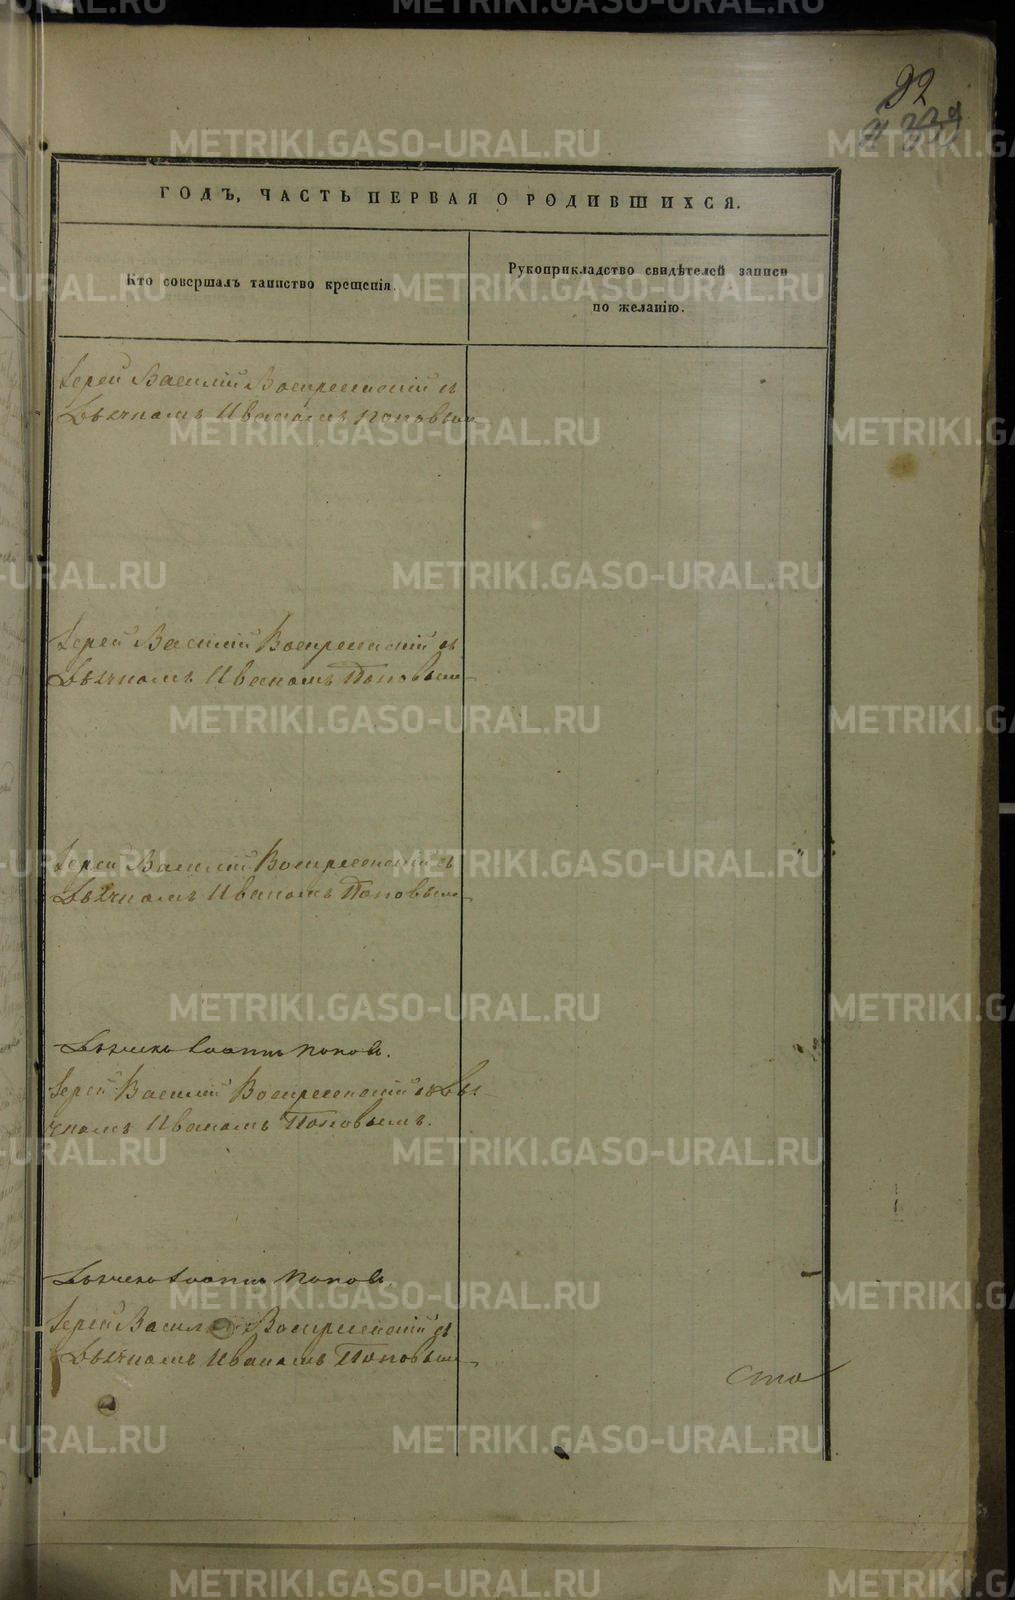 92
339
ГОДЪ, ЧАСТЬ ПЕРВАЯ О РОДИВШИХСЯ.
Кто совершалъ таинство крещенія.
Рукоприкладство свидѣтелей записи
по желанію.
Іерей Василій Воскресенскій съ
Дьячкомъ Иваномъ Поповым
Іерей Василій Воскресенскій съ
Дьячкомъ Иваномъ Поповым
Іерей Василій Воскресенскій съ
Дьячкомъ Иваномъ Поповым
Дьячекъ Іоаннъ Поповъ.
Іерей Василій Воскресенскій съ Дья
чкомъ Иваномъ Поповымъ.
Дьячекъ Іоаннъ Поповъ.
Іерей Василій Воскресенскій съ
Дьячкомъ Иваномъ Поповым
сто
METRIKI.GASO-URAL.RU